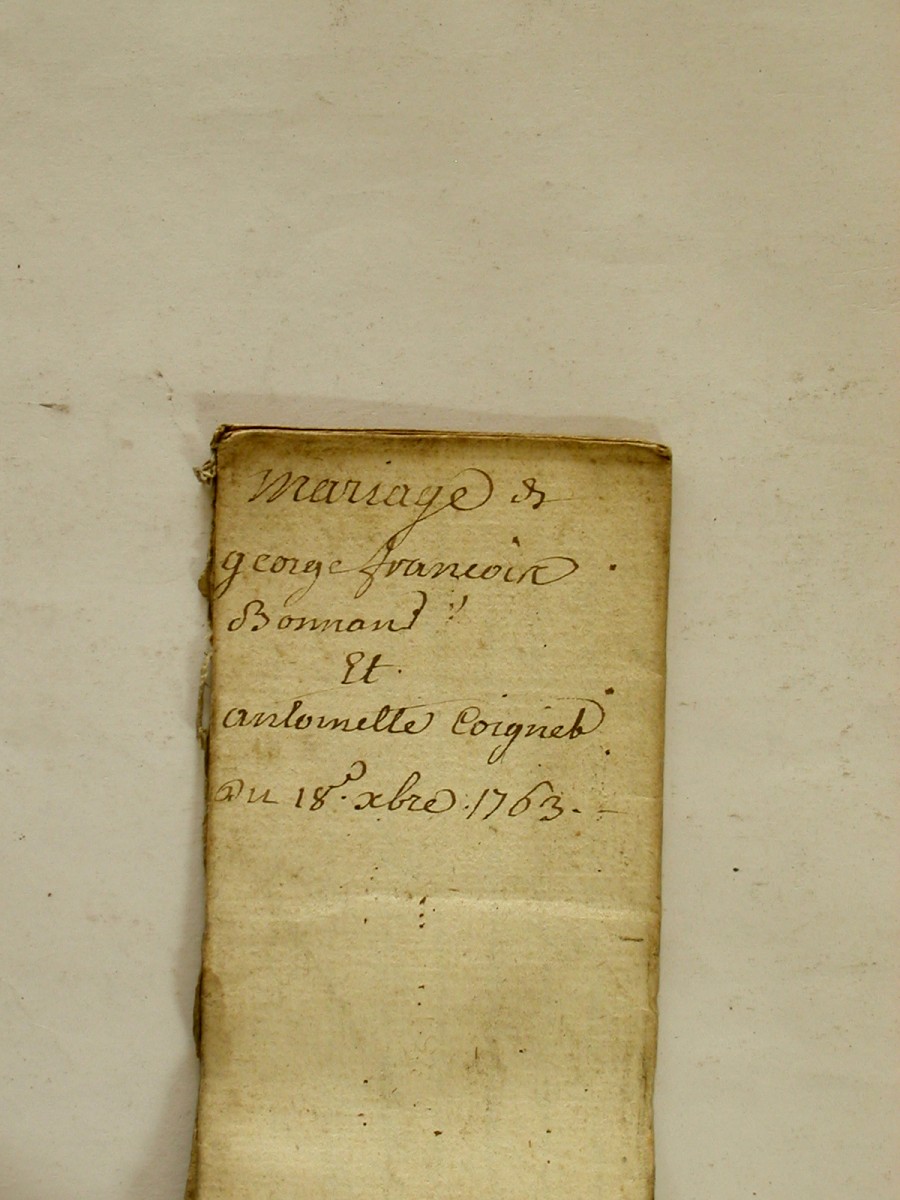 mariage de
george francoix
Bonnand
Et
antoinette Coignet
Du 18e. xbre. 1763.